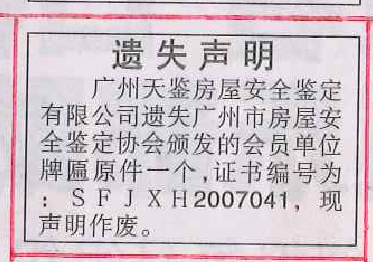 遗失声明
广州天鉴房屋安全鉴定
有限公司遗失广州市房屋安
全鉴定协会颁发的会员单位
牌匾原件一个,证书编号为
:SFJXH2007041,现
声明作废。